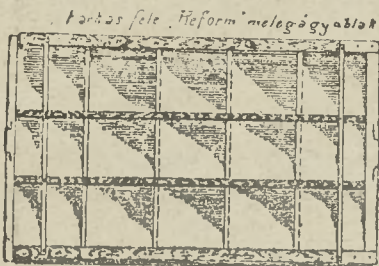 Farkas féle "Reform" melegágyablak